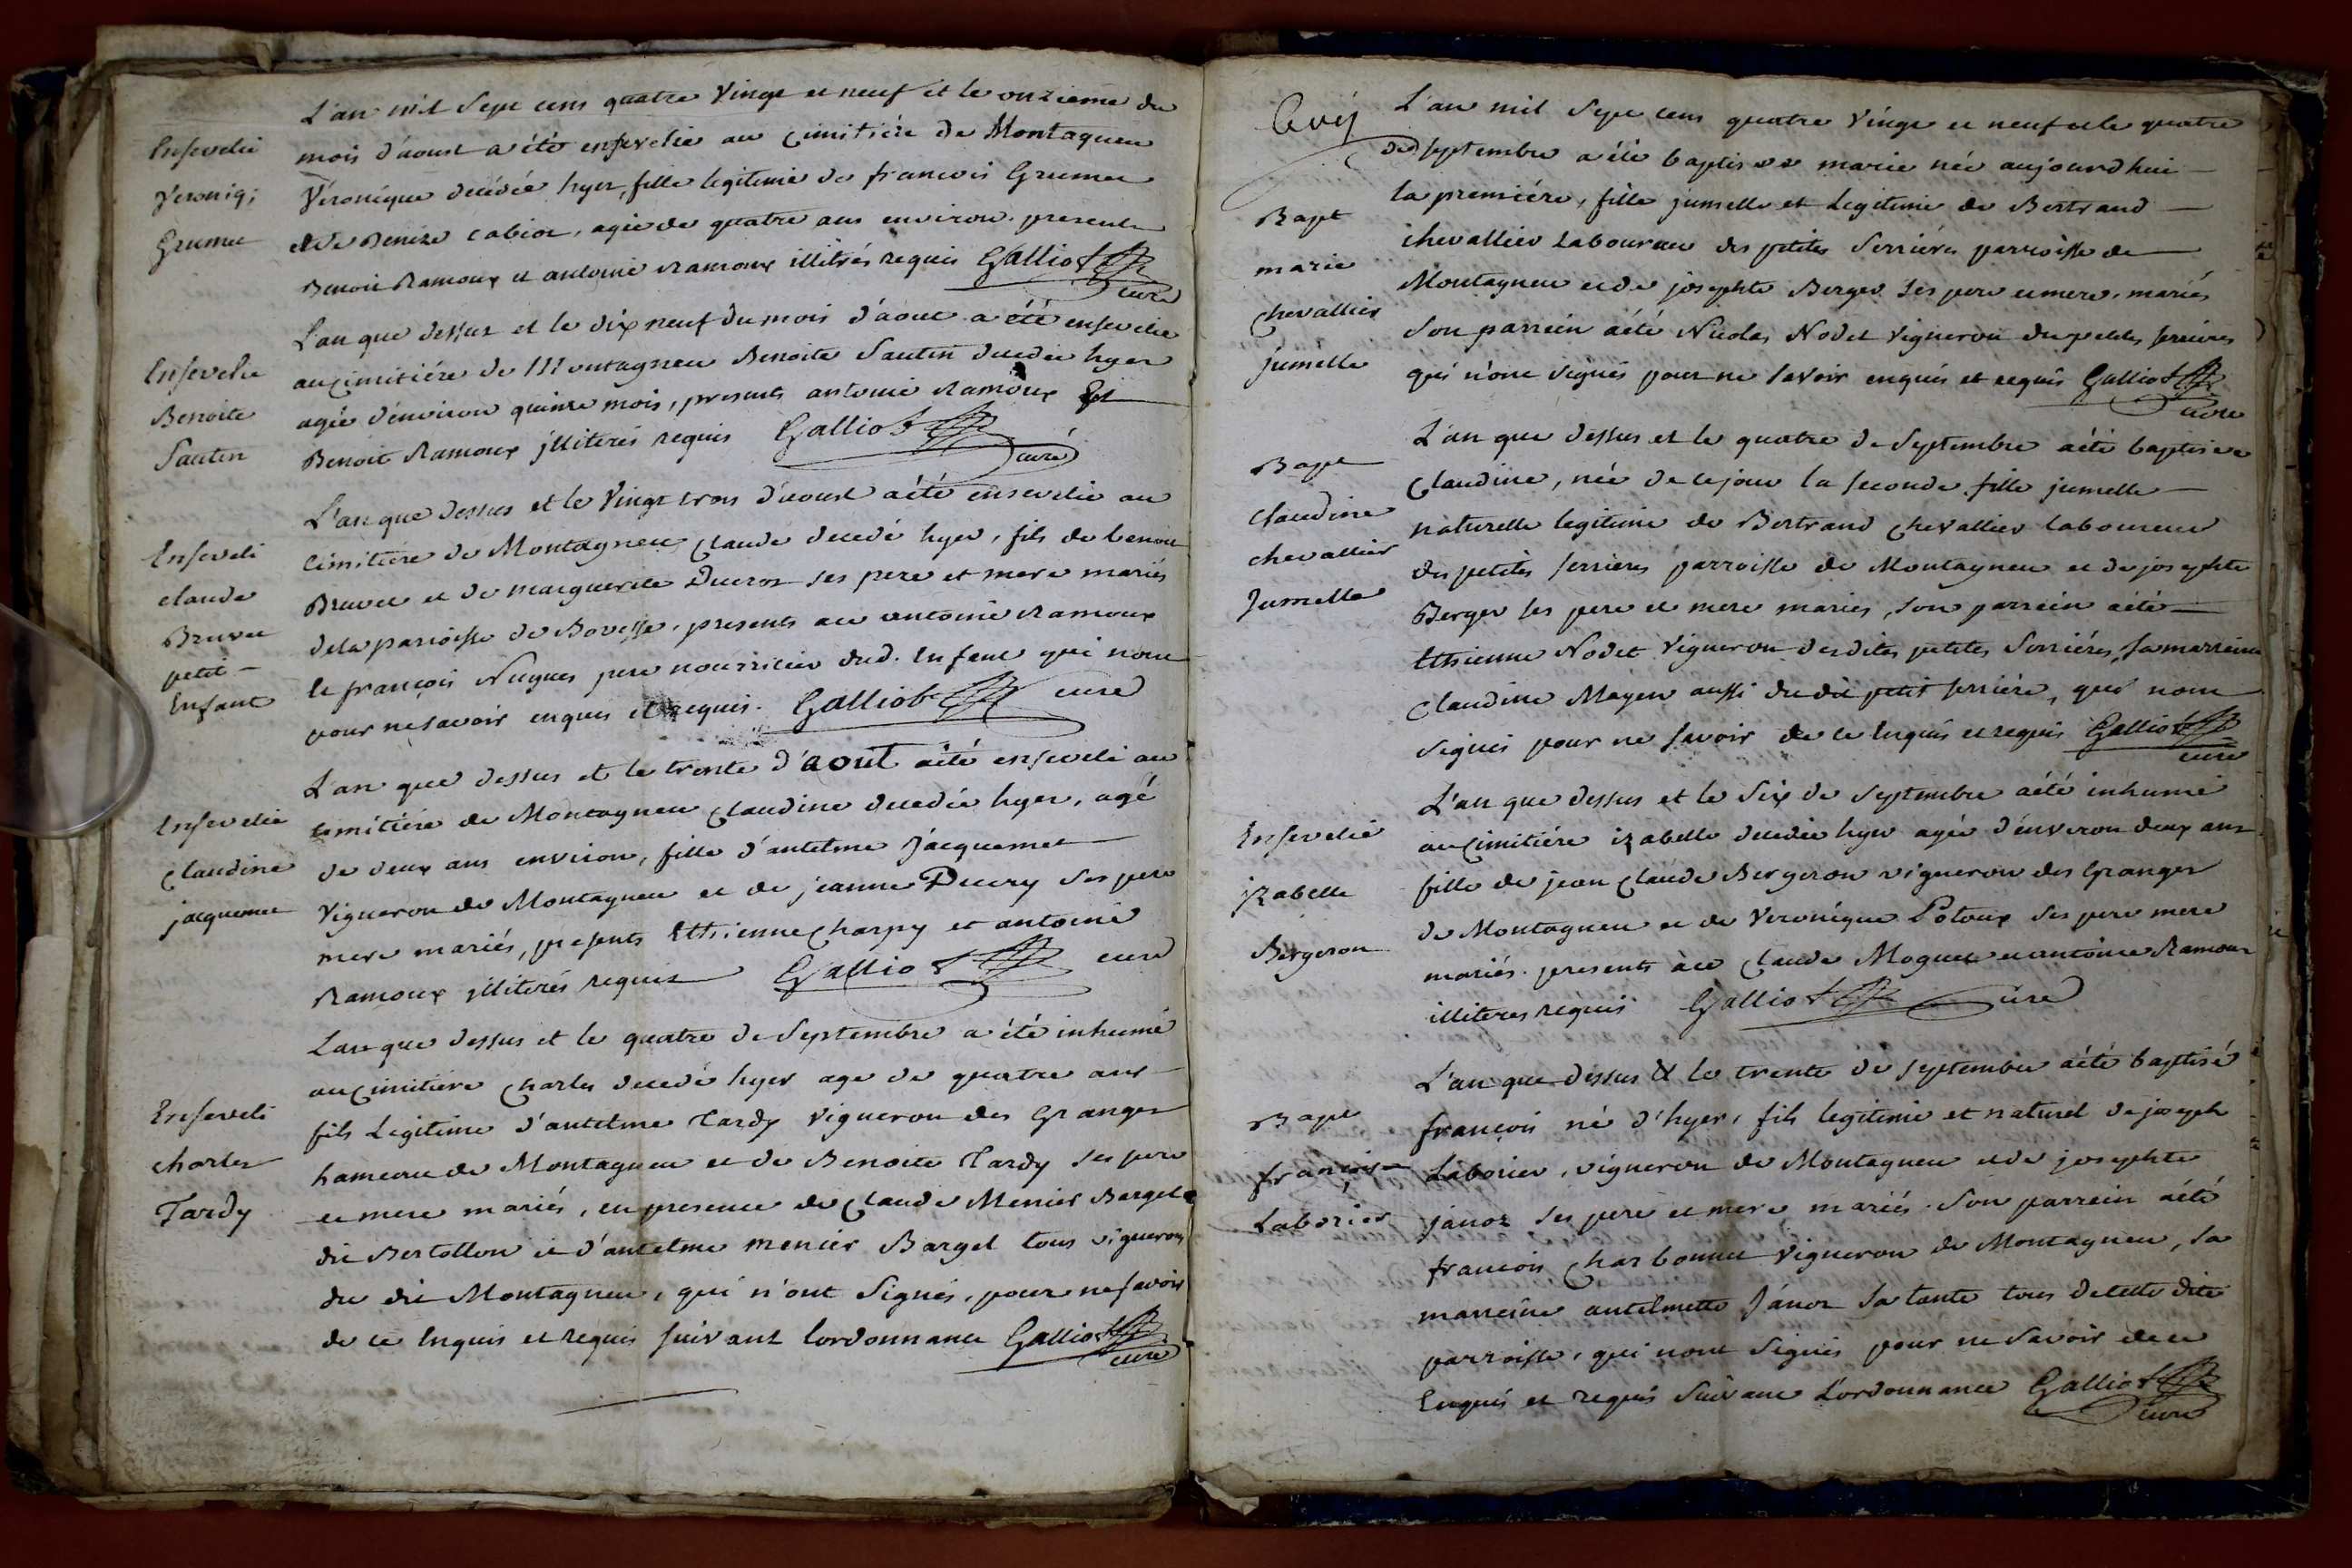 L'an mil sept cens quatre vingt et neuf et le onzieme du
Ensevelie
mois d'aoust a été ensevelie au cimitiére de Montagneu
Veroniq;
Véronique decédée hyer, fille legitime de francois Grumet
Grumet
et de Denise Cabiot, agée de quatre ans environ. presents
Benoit Ramoux et antoine Ramoux illitrés requis Galliot
curé
L'an que dessus et le dix neuf du mois d'aout a été ensevelie
Ensevelie
au cimitiére de Montagneu Benoite Sautin decedée hyer
Benoite
agée d'environ quinze mois, presents antoine Ramoux Et
Sautin
Benoit Ramoux illiterés requis Galliot
curé
L'an que dessus et le vingt trois d'aoust a été enseveli au
Enseveli
cimitiére de Montagneu Claude decedé hyer, fils de benoit
claude
Bruvet et de marguerite Ducros ses pere et mere mariés
Bruvet
de la parroisse de Bovesse, presents ace antoine Ramoux
petit
et françois Nugues pere nourricier dud. Enfant qui nont
Enfant
pour ne savoir enquis et requis. Galliot curé
L'an que dessus et le trente d'aout a été enseveli au
Ensevelie
cimitiére de Montagneu Claudine decedée hyer, agé
Claudine
de deux ans environ, fille d'antelme Jacquemet
jacquemet
Vigneron de Montagneu et de jeanne Ducry ses pere
mere mariés, presents Ethienne Charpy et antoine
Ramoux illiterés requis Galliot curé
L'an que dessus et le quatre de Septembre a été inhumé
au cimitiére Charles decedé hyer age de quatre ans
Enseveli
fils Legitime d'antelme Tardy Vigneron des Granges
charles
hameau de Montagneu et de Benoite Tardy ses pere
Tardy
et mere mariés, en presence de Claude Menier Bargel
dit Bertollon et d'antelme menier Bargel tous vignerons
du dit Montagneu, qui n'ont Signés, pour ne savoir
de ce Enquis et requis suivant lordonnance Galliot
curé
L'an mil sept cens quatre vingt et neuf et le quatre
de septembre a été baptisée marie née aujourdhui
Bapt
la premiére, fille jumelle et Legitime de Bertrand
marie
chevallier Laboureur des petites Serriéres parroisse de
Chevallier
Montagneu et de josephte Berger ses pere et mere, mariés
jumelle
Son parrein a été Nicolas Nodet Vigneron du petites serrieres
qui n'ont signés pour ne savoir enquis et requis Galliot
curé
L'an que dessus et le quatre de Septembre a été baptisée
Bapt
Claudine, née de ce jour la seconde fille jumelle
Claudine
naturelle legitime de Bertrand Chevallier laboureur
chevallier
des petites serrieres parroisse de Montagneu et de josephte
Jumelle
Berger ses pere et mere mariés, son parrein a été
Ethienne Nodet Vigneron desdites petites Serriéres, sa marreine
Claudine Mayen aussi du dit petit serriére, qui nont
signés pour ne savoir de ce Enquis et requis Galliot
curé
L'an que dessus et le Six de Septembre a été inhumé
Ensevelie
au cimitiére izabelle decedée hyer agée d'environ deux ans
izabelle
fille de jean Claude Bergeron vigneron des Granges
Bergeron
de Montagneu et de Veronique Potoux ses pere mere
mariés. presents àce Claude Moguet et antoine Ramoux
illiteres requis Galliot curé
L'an que dessus & le trente de septembre a été baptisé
Bapt
françois né d'hyer, fils legitime et naturel de joseph
françois
Laborier, vigneron de Montagneu et de josephte
Laborier
janoz ses pere et mere mariés. Son parrein a été
francois Charbonnet vigneron de Montagneu, sa
marreine antelmette Janoz sa tante tous de cette dite
parroisse, qui nont signés pour ne savoir de ce
Enquis et requis suivant L'ordonnance Galliot
curé